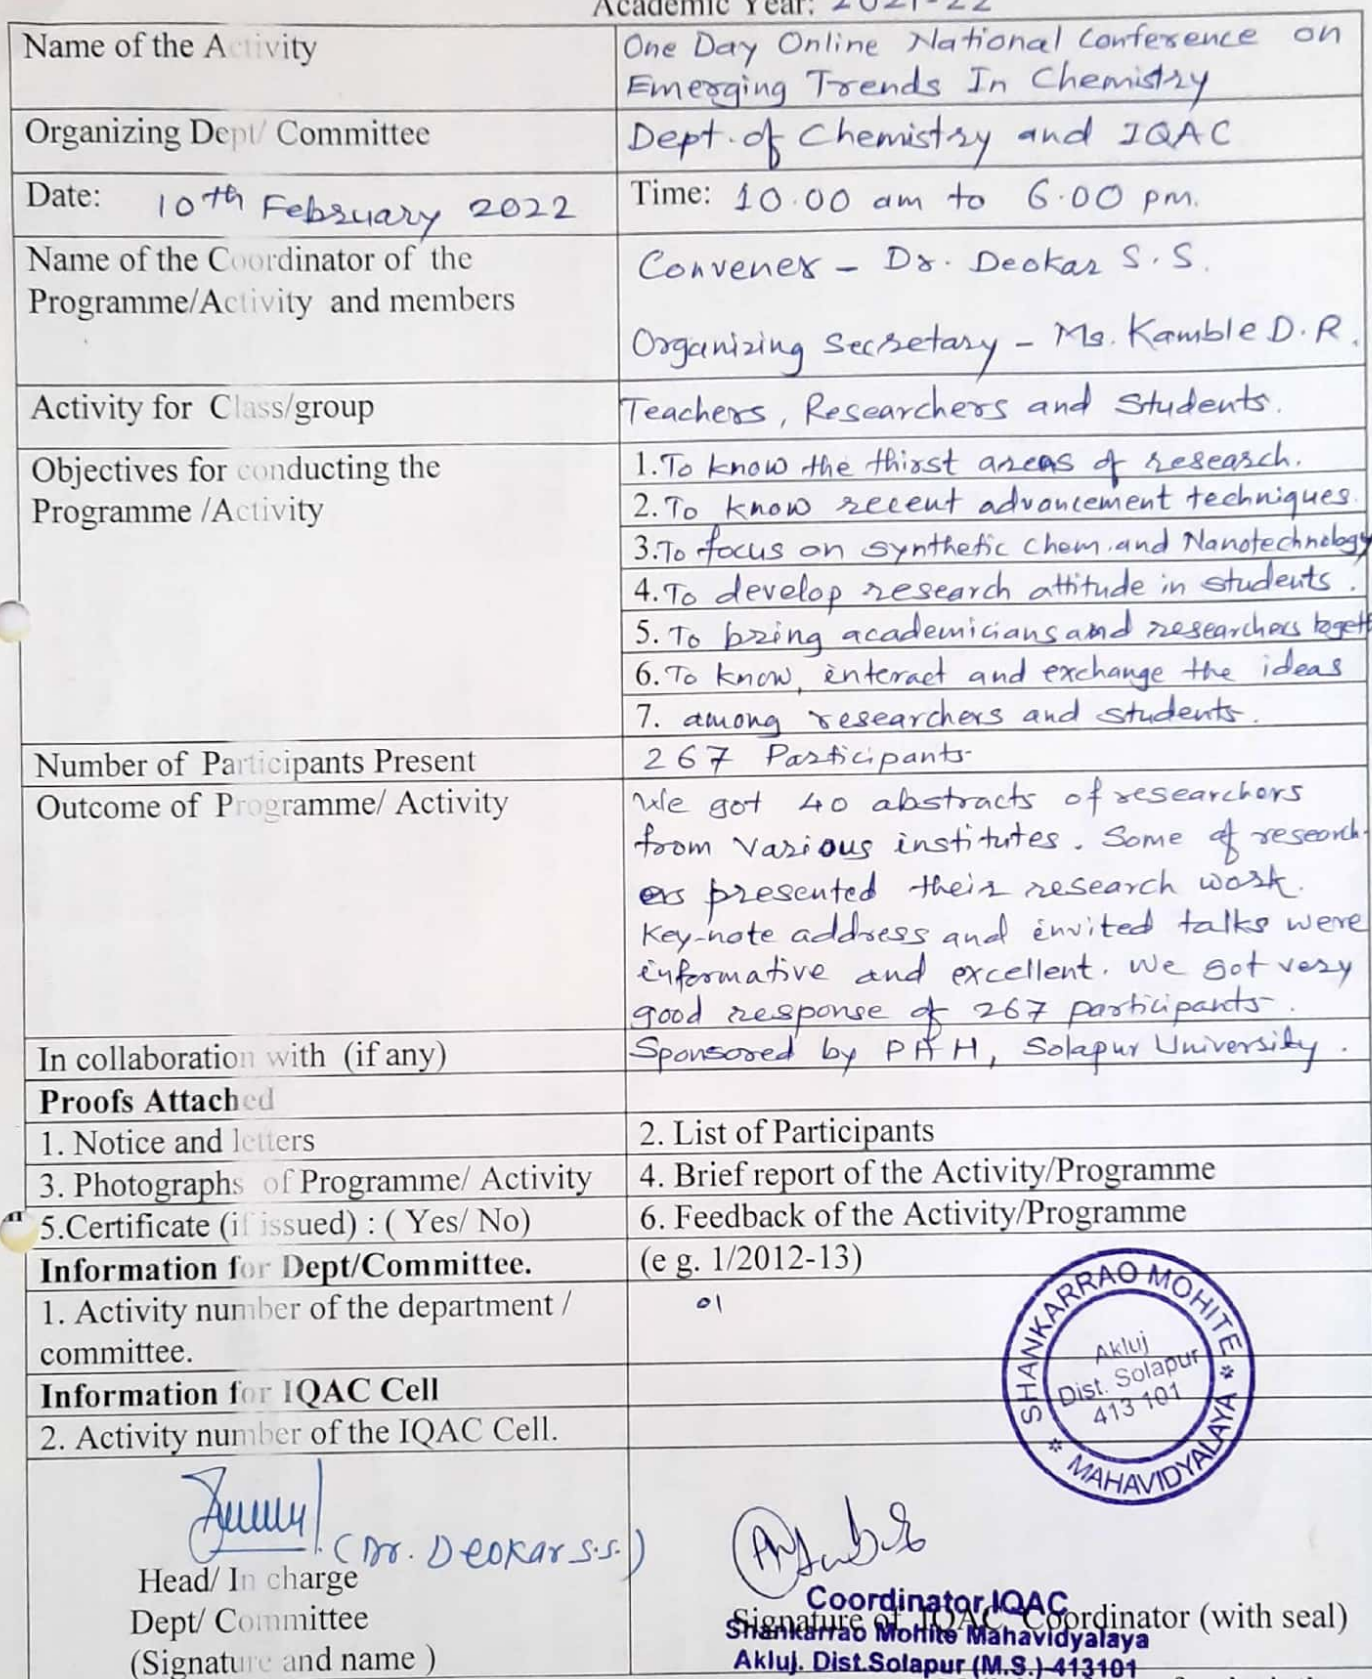 Academic Year: 2021-22
Name of the Activity
One Day Online National Conference on
Emerging Trends In Chemistry
Organizing Dept/ Committee
Dept. of Chemistry and IQAC
Date: 10th February 2022
Time: 10.00 am to 6.00 pm.
Name of the Coordinator of the
Programme/Activity and members
Convener - Dr. Deokar S.S.
Organizing Secretary - Ms. Kamble D.R.
Activity for Class/group
Teachers, Researchers and Students.
Objectives for conducting the
Programme /Activity
1. To know the thirst areas of research.
2. To know recent advancement techniques.
3. To focus on synthetic chem. and Nanotechnology
4. To develop research attitude in students.
5. To bring academicians and researchers togeth
6. To know, interact and exchange the ideas
7. among researchers and students.
Number of Participants Present
267 Participants
Outcome of Programme/ Activity
We got 40 abstracts of researchers
from various institutes. Some of research-
ers presented their research work.
Key-note address and invited talks were
informative and excellent. We got very
good response of 267 participants.
In collaboration with (if any)
Sponsored by PAH, Solapur University.
Proofs Attached
1. Notice and letters
2. List of Participants
3. Photographs of Programme/ Activity
4. Brief report of the Activity/Programme
5.Certificate (if issued) : ( Yes/ No)
6. Feedback of the Activity/Programme
Information for Dept/Committee.
(e g. 1/2012-13)
1. Activity number of the department /
committee.
01
Information for IQAC Cell
2. Activity number of the IQAC Cell.
SHANKARRAO MOHITE * MAHAVIDYALAYA *
Akluj
Dist. Solapur
413 101
(Dr. Deokar S.S.)
Head/ In charge
Dept/ Committee
(Signature and name )
Coordinator IQAC
Signature of IQAC Coordinator (with seal)
Shankarrao Mohite Mahavidyalaya
Akluj. Dist.Solapur (M.S.)-413101